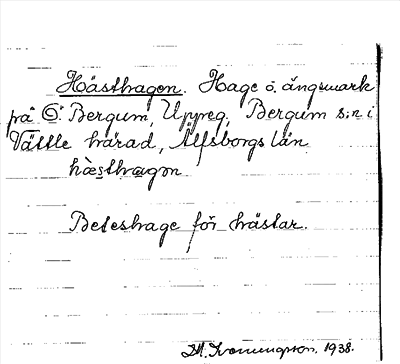 Hästhagen. Hage o. ängsmark
på Ö. Bergum, Uppreg. Bergum s:n i
Vättle härad, Älfsborgs län
hæsthagən
Beteshage för hästar.
1938.